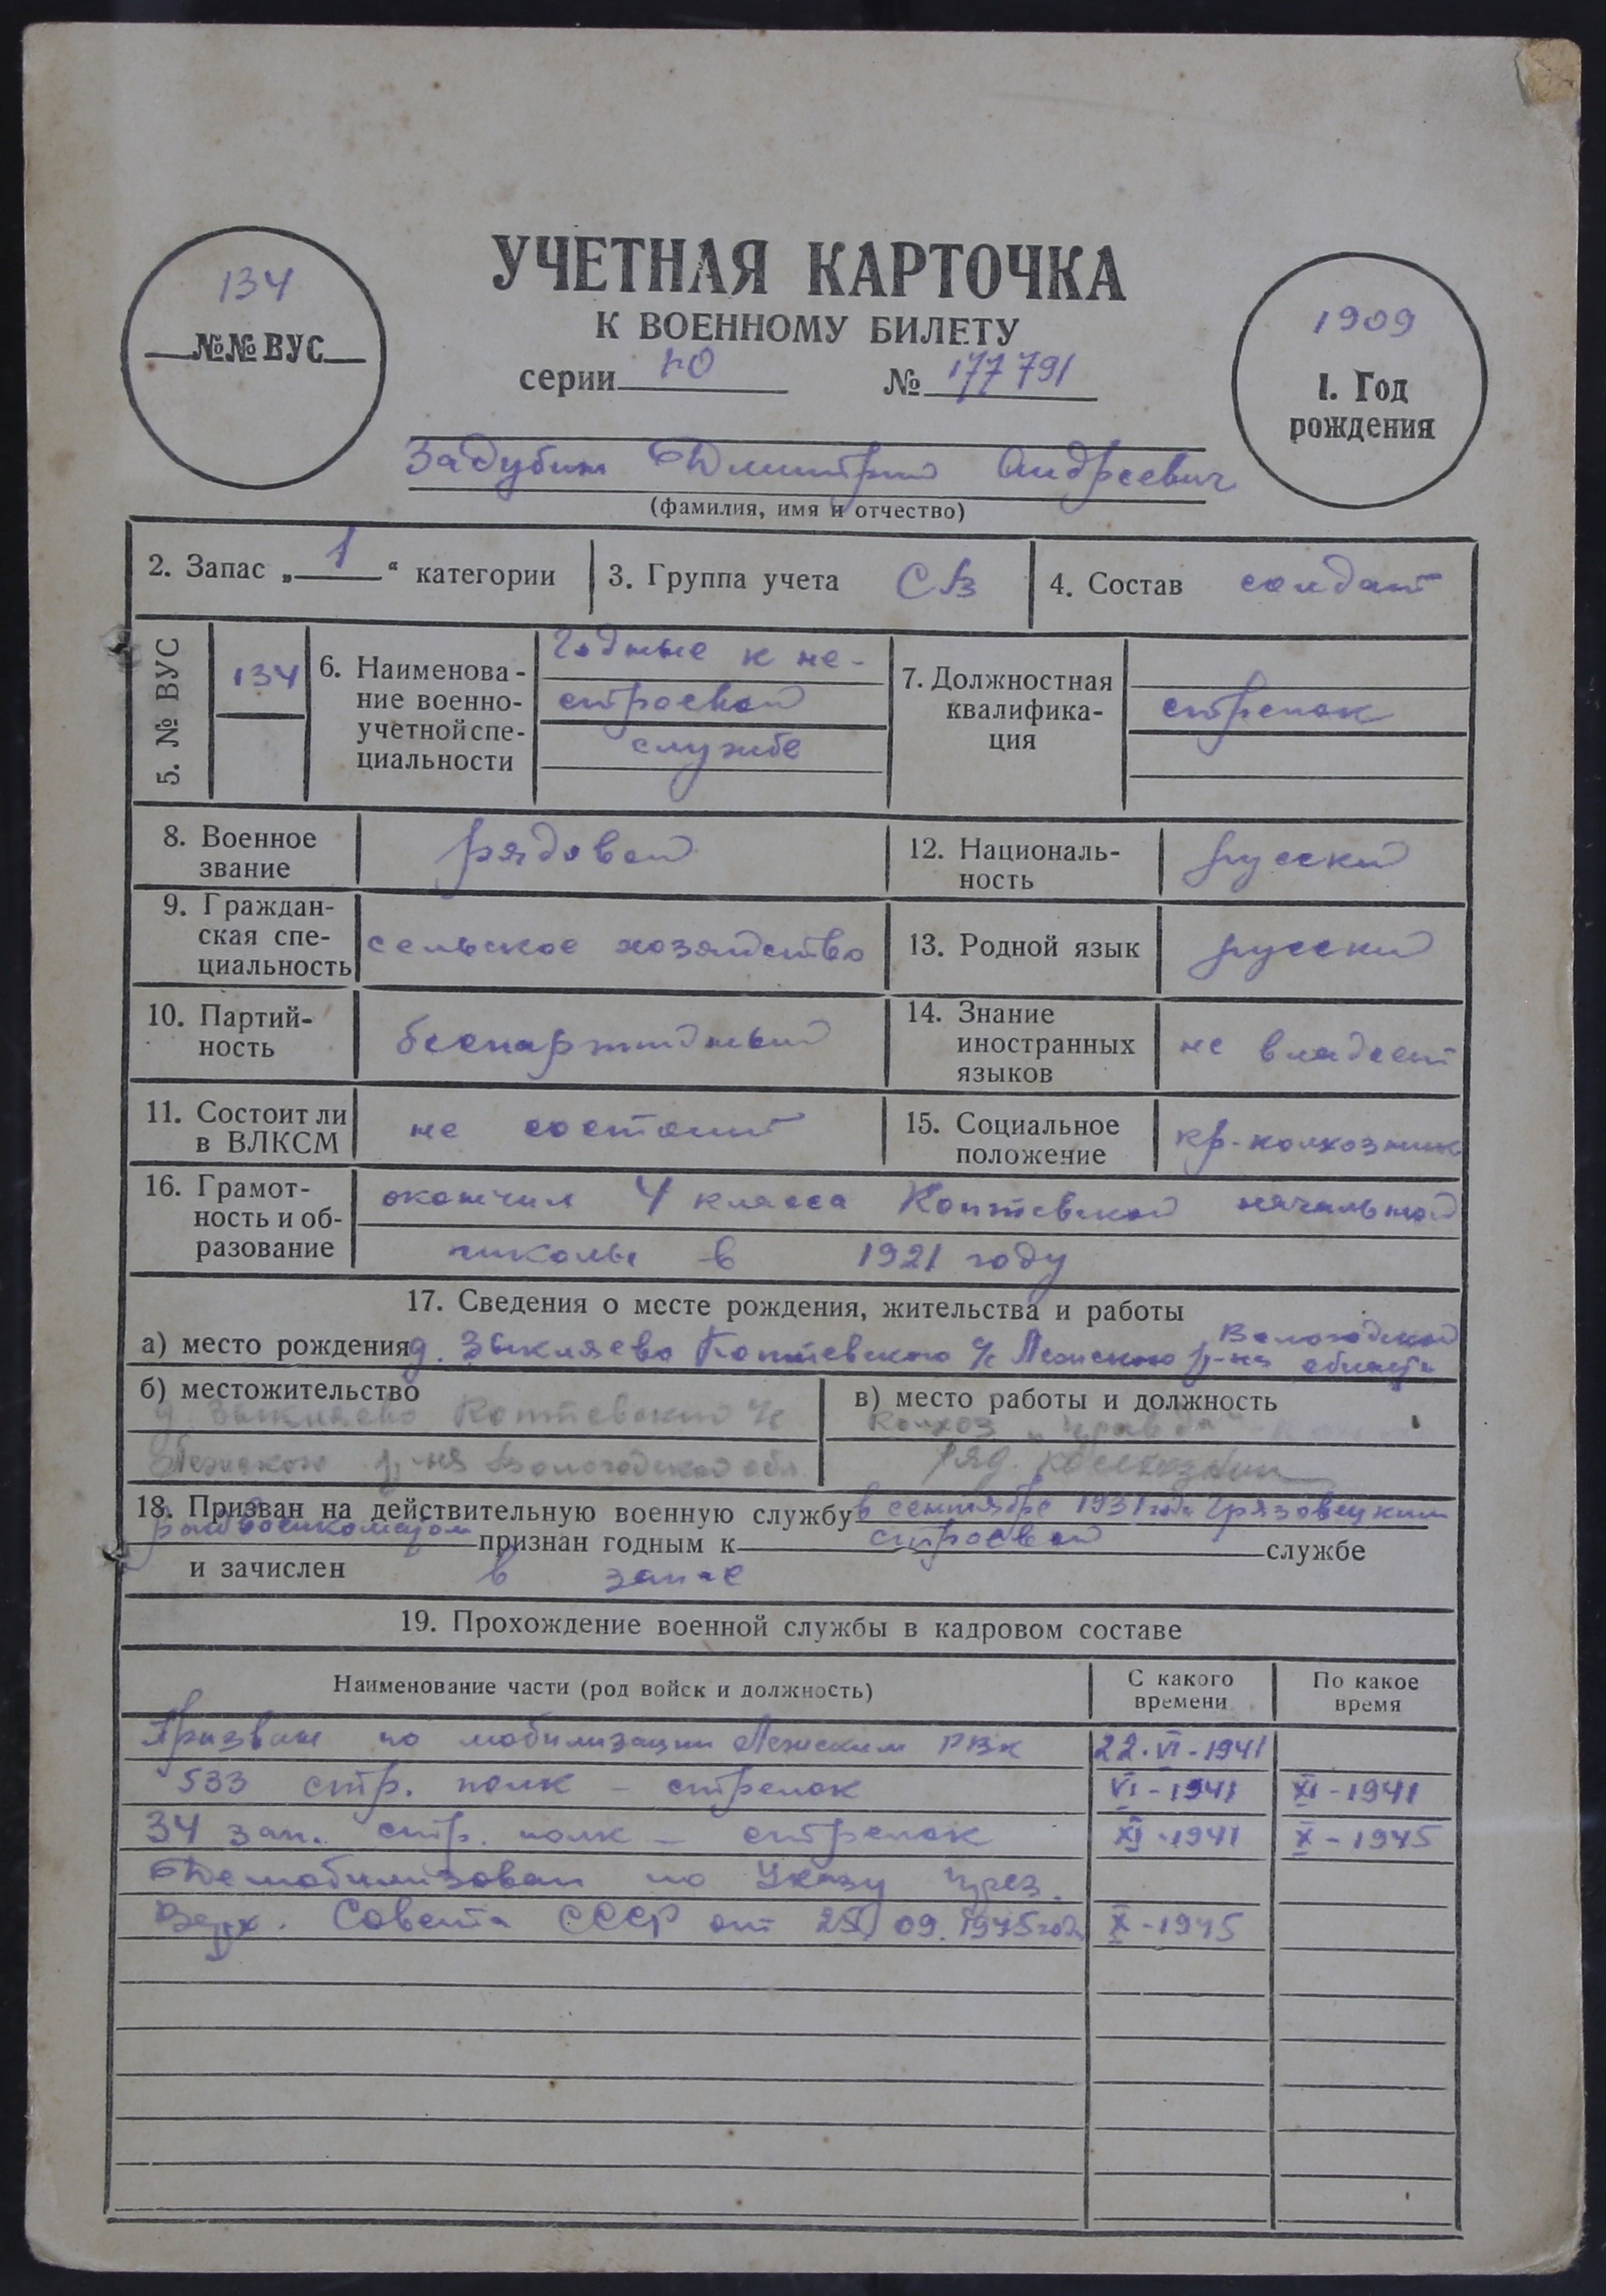 УЧЕТНАЯ КАРТОЧКА
К ВОЕННОМУ БИЛЕТУ
серии № 177791
134
№№ ВУС
1909
1. Год
рождения
Задубин Дмитрий Андреевич
(фамилия, имя и отчество)
2. Запас „ 1 “ категории
3. Группа учета СВ
4. Состав солдат
5. № ВУС
134
6. Наименова-
ние военно-
учетной спе-
циальности
Годные к не-
строевой
службе
7. Должностная
квалифика-
ция
стрелок
8. Военное
звание
рядовой
12. Националь-
ность
русский
9. Граждан-
ская спе-
циальность
сельское хозяйство
13. Родной язык
русский
10. Партий-
ность
беспартийный
14. Знание
иностранных
языков
не владеет
11. Состоит ли
в ВЛКСМ
не состоит
15. Социальное
положение
кр-колхозник
16. Грамот-
ность и об-
разование
окончил 4 класса Коптевской начальной
школы в 1921 году
17. Сведения о месте рождения, жительства и работы
а) место рождения д. Звыкляево Коптевского с/с Лежского р-на Вологодской
области
б) местожительство
д. Звыкляево Коптевский с/с
Лежского р-на Вологодской обл
в) место работы и должность
Колхоз „Правда“
ряд. колхозник
18. Призван на действительную военную службу в сентябре 1931 года Грязовецким
райвоенкоматом признан годным к строевой службе
и зачислен в запас
19. Прохождение военной службы в кадровом составе
Наименование части (род войск и должность)
С какого
времени
По какое
время
Призван по мобилизации Лежским РВК 22.VI-1941
533 стр. полк - стрелок VI-1941 XI-1941
34 зап. стр. полк - стрелок XI-1941 X-1945
Демобилизован по Указу през.
Верх. Совета СССР от 25/09.1945 года X-1945